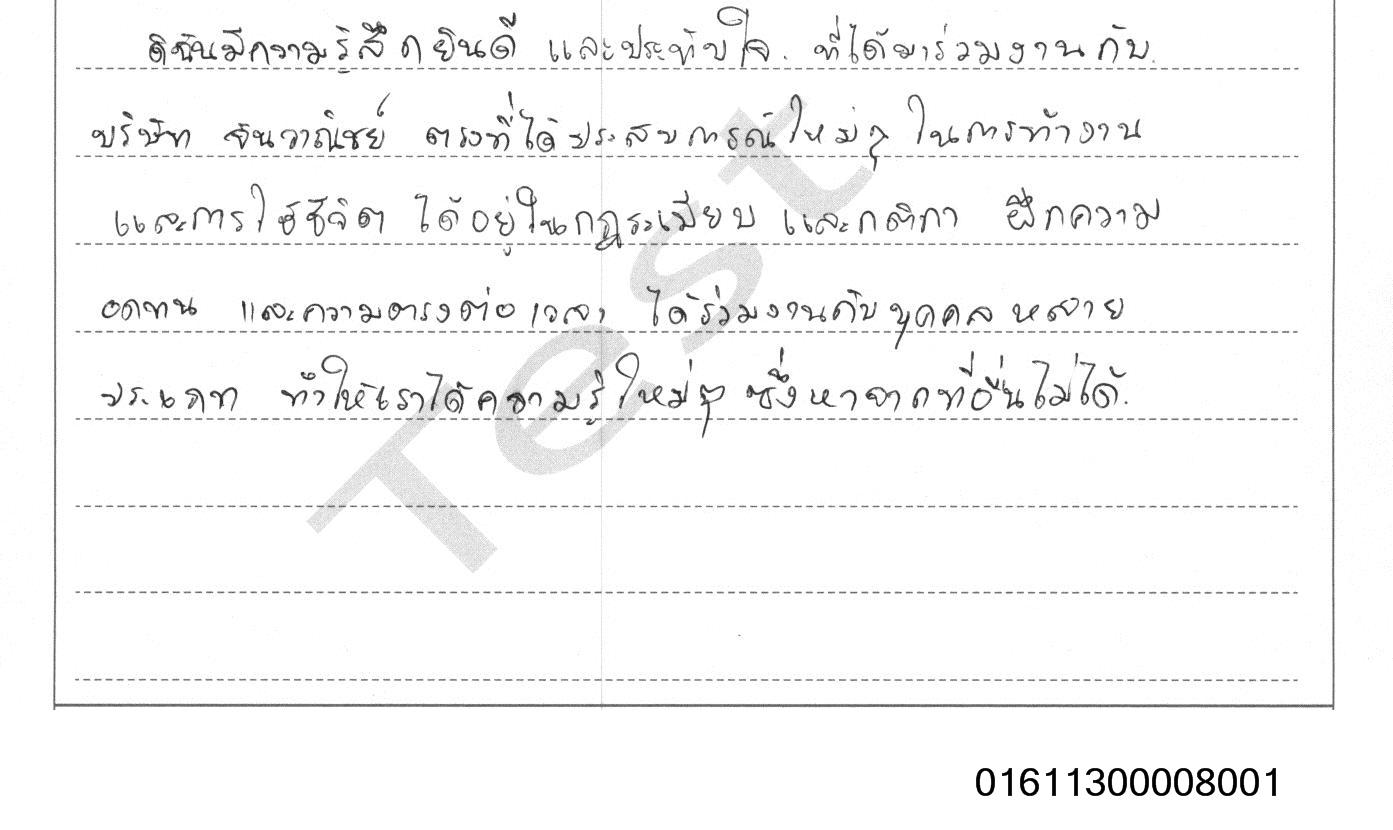 ดิฉันมีความรู้สึกยินดี และประทับใจ. ที่ได้มาร่วมงานกับ
บริษัท จันวาณิชย์ ตรงที่ได้ประสบการณ์ใหม่ๆ ในการทำงาน
และการใช้ชีวิต ได้อยู่ในกฎระเบียบ และกติกา ฝึกความ
อดทน และความตรงต่อเวลา ได้ร่วมงานกับบุคคลหลาย
ประเภท ทำให้เราได้ความรู้ใหม่ๆ ซึ่งหาจากที่อื่นไม่ได้.
Test
01611300008001